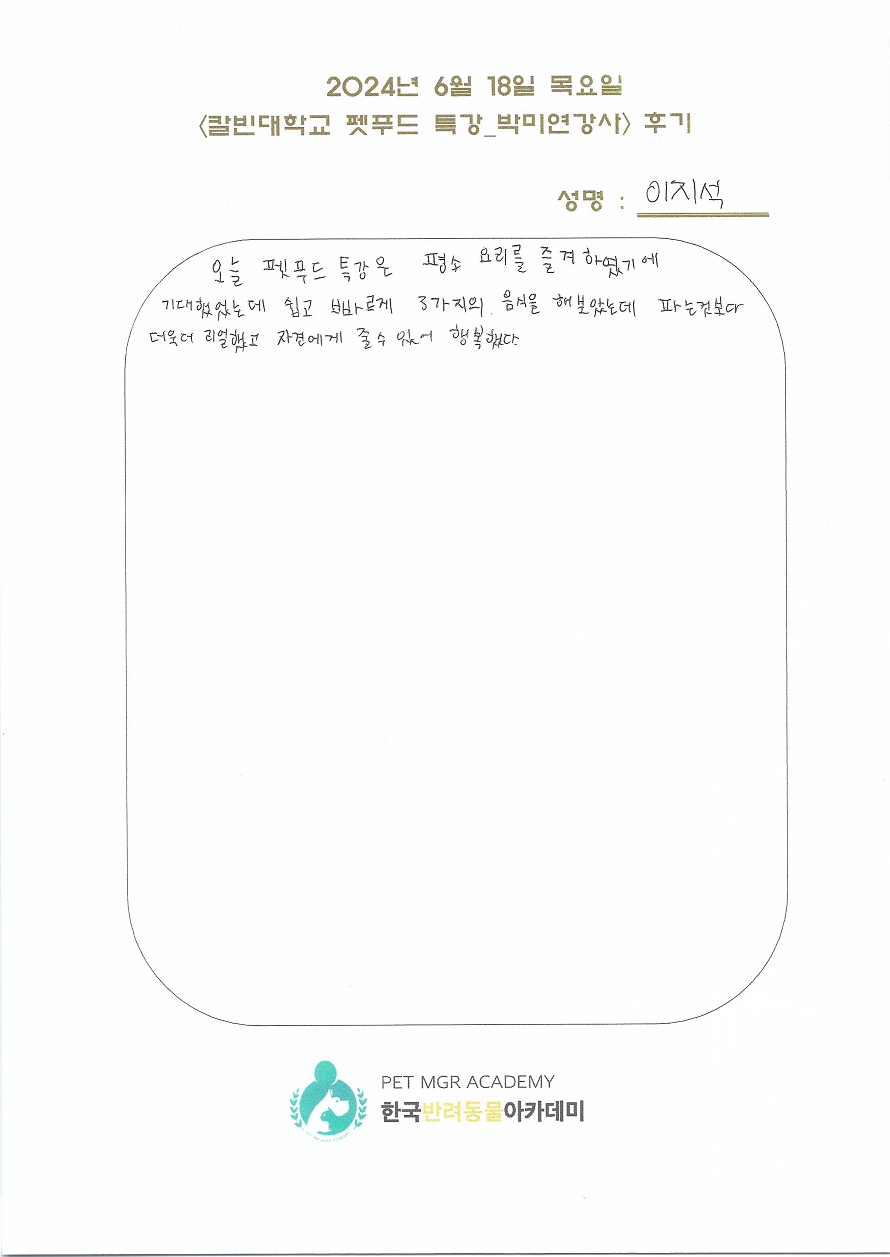 2024년 6월 18일 목요일
<칼빈대학교 펫푸드 특강_박미연강사> 후기
성명 : 이지석
오늘 펫푸드 특강은 평소 요리를 즐겨하였기에
기대했었는데 쉽고 빠르게 3가지의 음식을 해보았는데 파는것보다
더욱더 리얼했고 자견에게 줄 수 있어 행복했다
PET MGR ACADEMY
한국반려동물아카데미